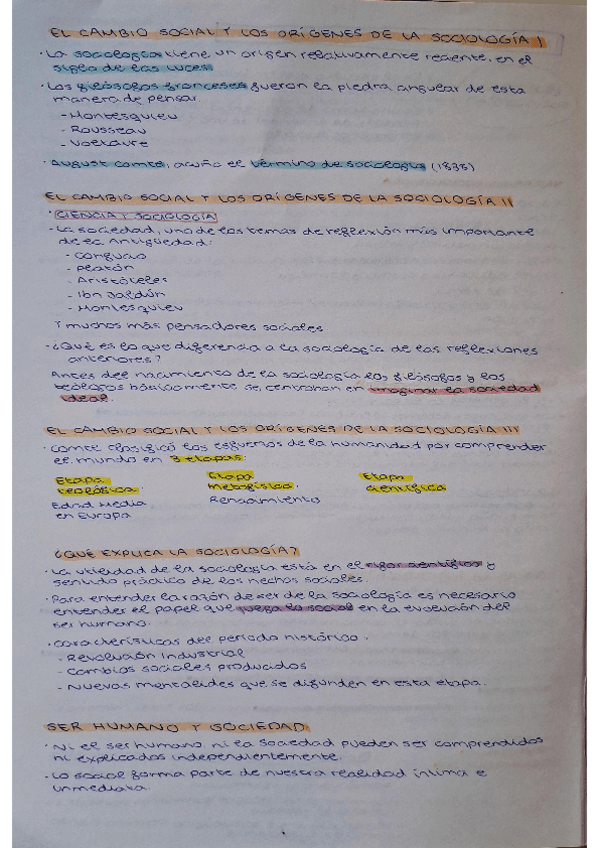 EL CAMBIO SOCIAL Y LOS ORÍGENES DE LA SOCIOLOGÍA I
· La sociología tiene un origen relativamente reciente, en el
siglo de las luces
· Los filósofos franceses fueron la piedra angular de esta
manera de pensar.
- Montesquieu
- Rousseau
- Voltaire
· August Comte, acuño el término de sociología (1838)
EL CAMBIO SOCIAL Y LOS ORÍGENES DE LA SOCIOLOGÍA II
· CIENCIA Y SOCIOLOGÍA
· La sociedad, uno de los temas de reflexión más importante
de la Antigüedad:
- Confucio
- Platón
- Aristóteles
- Ibn Jaldún
- Montesquieu
Y muchos más pensadores sociales
· ¿Qué es lo que diferencia a la sociología de las reflexiones
anteriores?
Antes del nacimiento de la sociología los filósofos y los
teólogos básicamente se centraban en imaginar la sociedad
ideal.
EL CAMBIO SOCIAL Y LOS ORÍGENES DE LA SOCIOLOGÍA III
· Comte clasificó los esfuerzos de la humanidad por comprender
el mundo en 3 etapas:
Etapa teológica. Etapa metafísica. Etapa científica
Edad Media en Europa Renacimiento
¿QUÉ EXPLICA LA SOCIOLOGÍA?
· La utilidad de la sociología está en el rigor científico y
sentido práctico de los hechos sociales.
· Para entender la razón de ser de la sociología es necesario
entender el papel que juega lo social en la evolución del
ser humano.
· Características del periodo histórico.
- Revolución Industrial
- Cambios sociales producidos
- Nuevas mentalides que se difunden en esta etapa.
SER HUMANO Y SOCIEDAD
· Ni el ser humano, ni la sociedad pueden ser comprendidos
ni explicados independientemente.
· Lo social forma parte de nuestra realidad íntima e
inmediata.